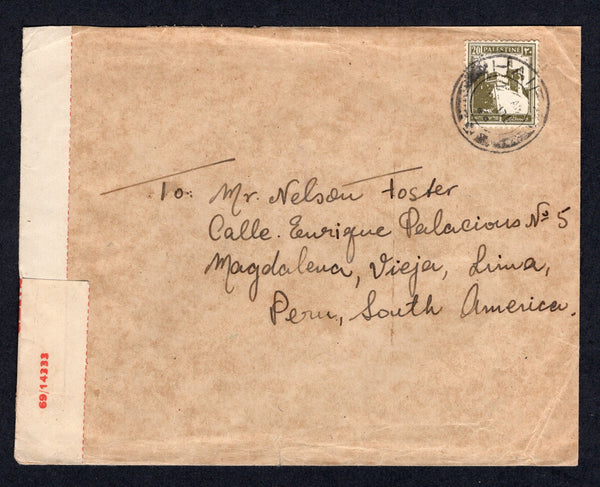 20 PALESTINE ٢٠
To: Mr. Nelson Foster
Calle. Enrique Palacious Nº 5
Magdalena, Vieja, Lima,
Peru, South America.
69/14333